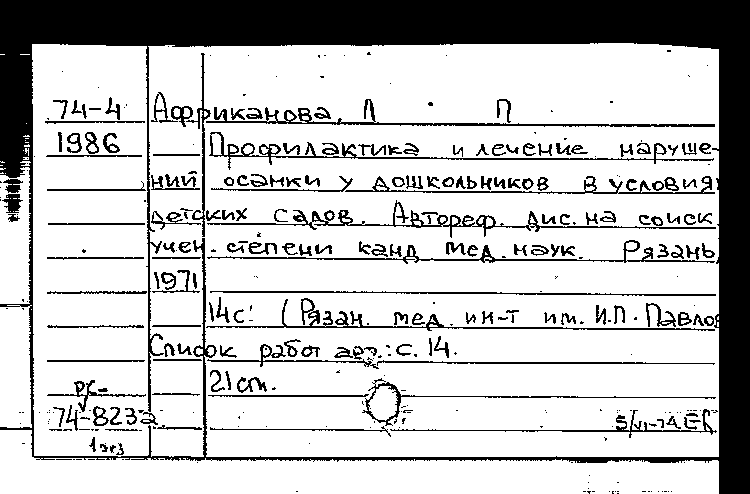 74-4 Африканова, Л П
1986 Профилактика и лечение наруше-
ний осанки у дошкольников в условия
детских садов. Автореф. дис. на соиск.
учен. степени канд мед. наук. Рязань,
1971
14с. (Рязан. мед. ин-т им. И.П. Павлов
Список работ авт.: с. 14.
21 cm.
РС-
74-8232
1 экз